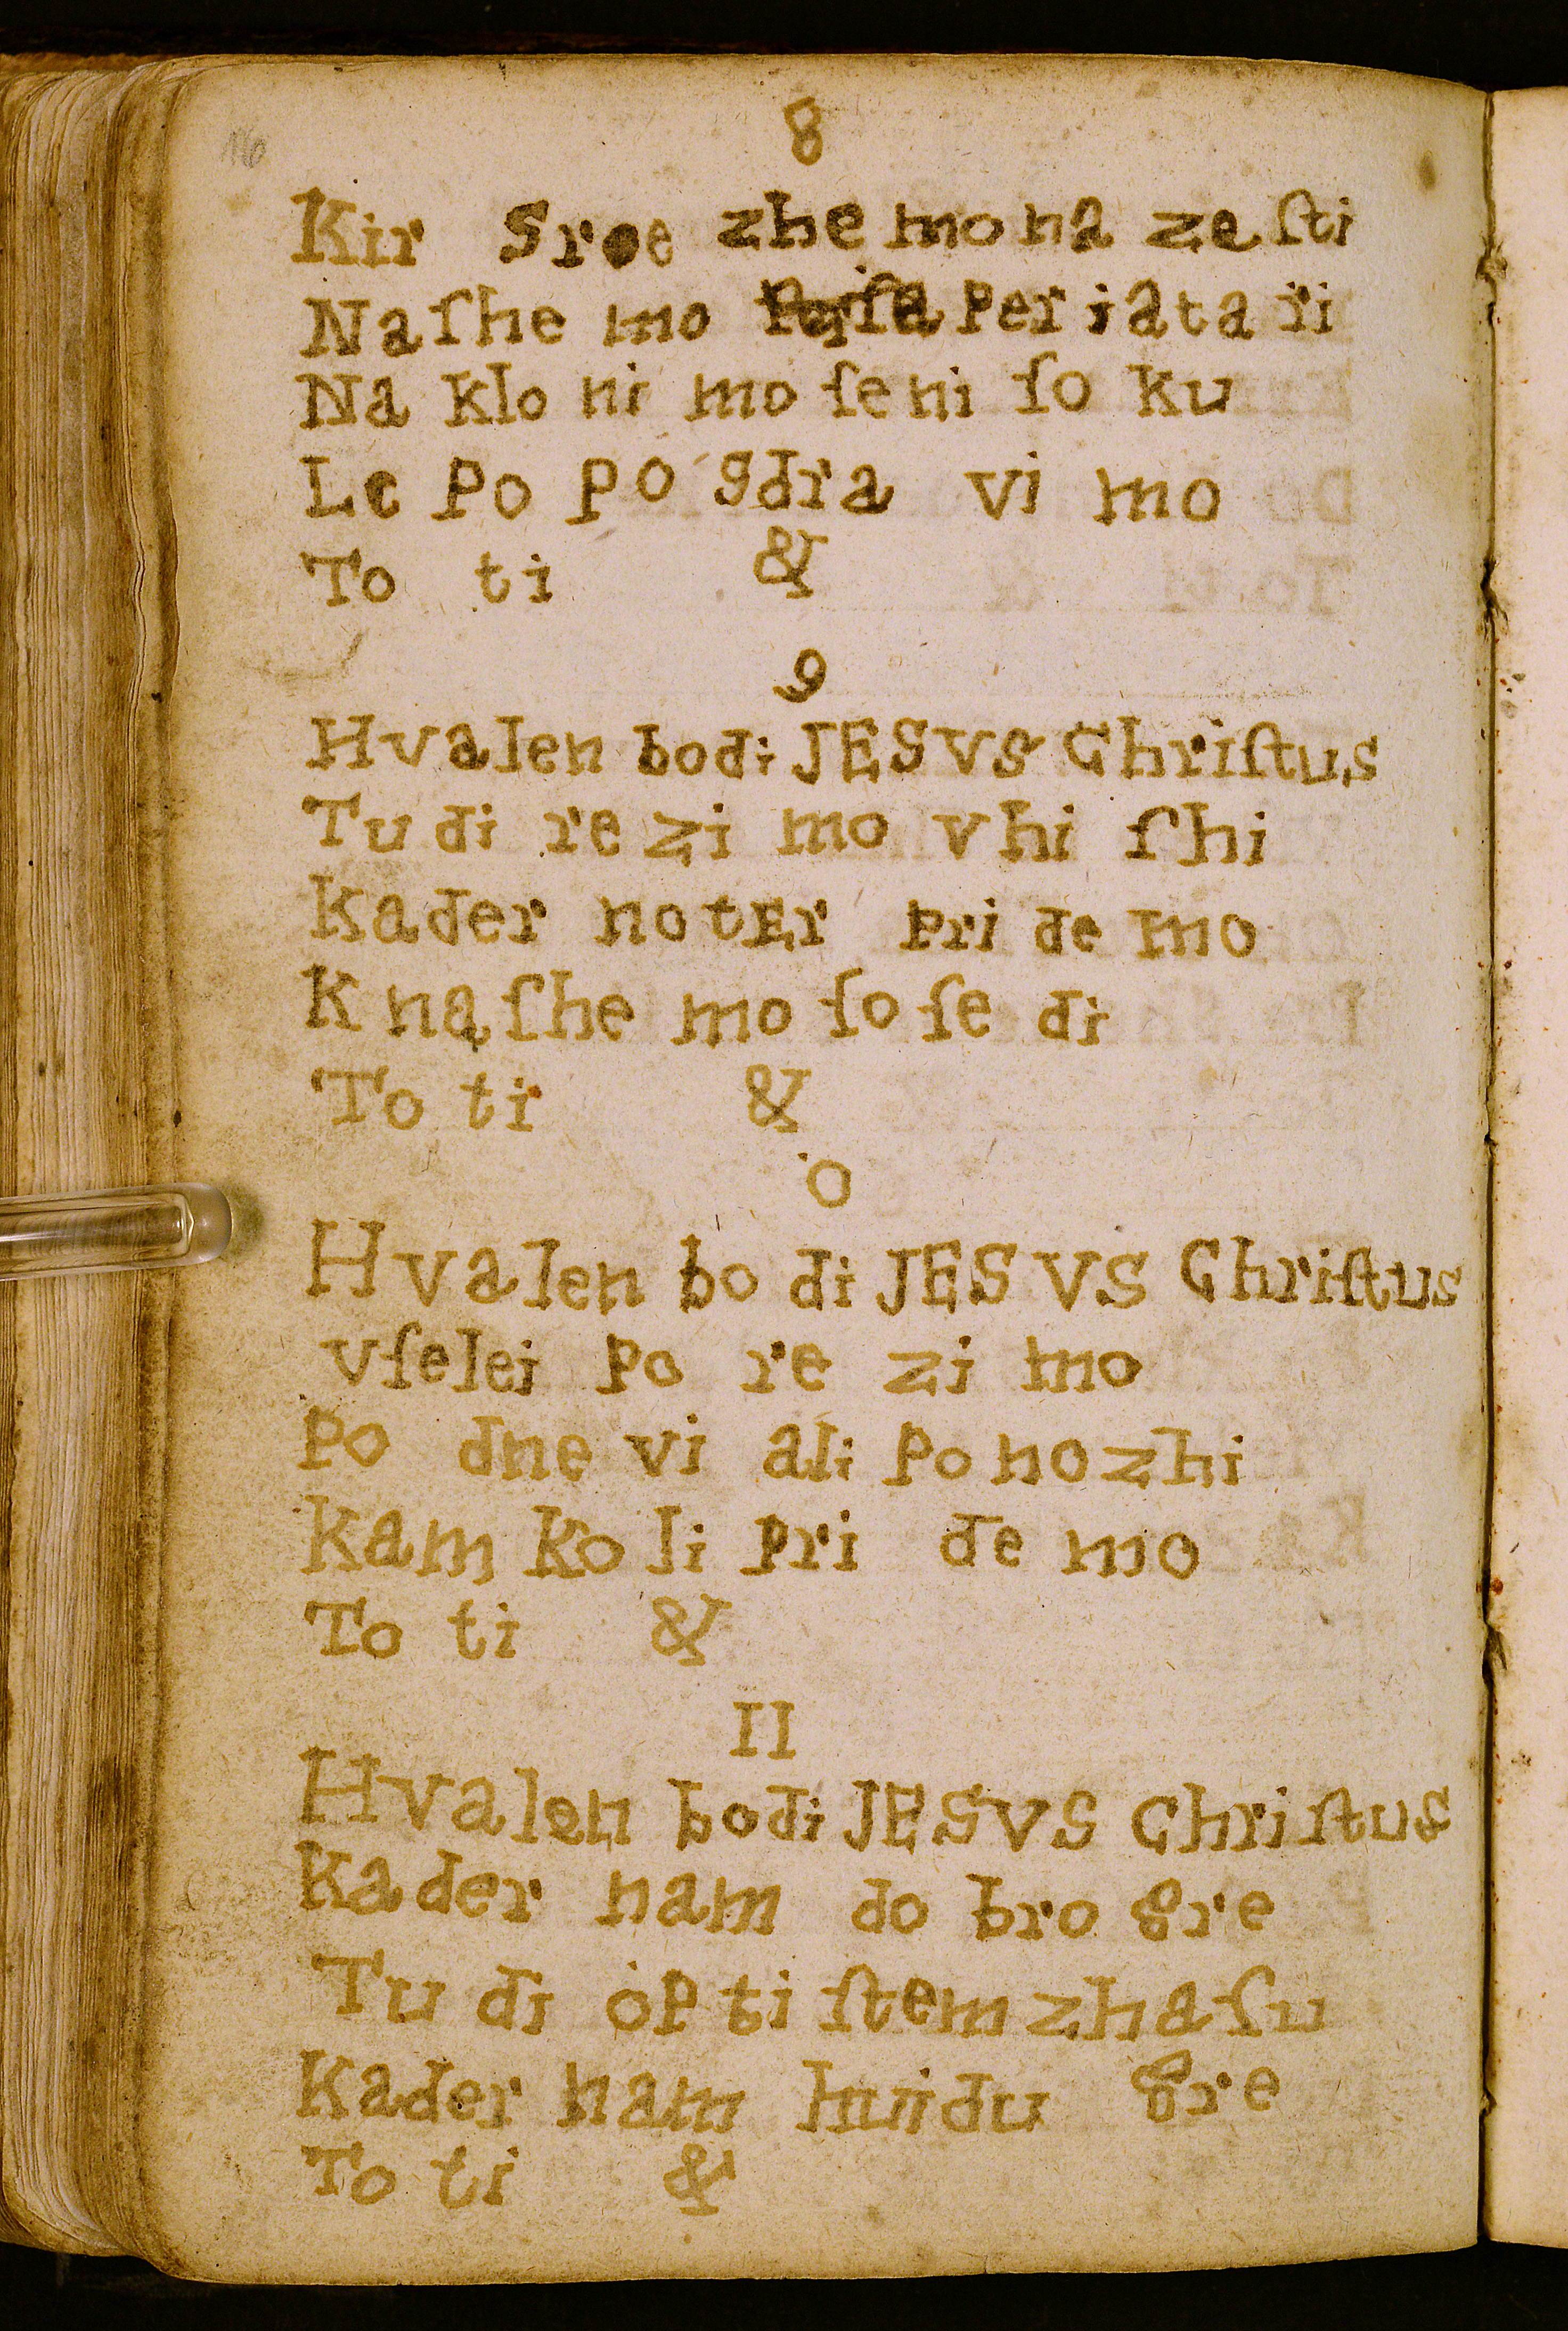 16
8
Kir Sree zhe mo na ze ſti
Na ſhe mo Per ja ta ri
Na klo ni mo ſe ni ſo ku
Le Po po sdra vi mo
To ti &
9
Hvalen bodi JESVS Chriſtus
Tu di re zi mo v hi ſhi
Kader notEr pri de mo
K na ſhe mo ſo ſe di
To ti &
0
Hvalen bo di JESVS Chriſtus
Vſelei Po re zi mo
Po dne vi ali Po nozhi
Kam Ko li Pri de mo
To ti &
II
Hvalen bodi JESVS Chriſtus
Kader nam do bro gre
Tu di op ti ſtem zha ſu
Kader nam huidu gre
To ti &